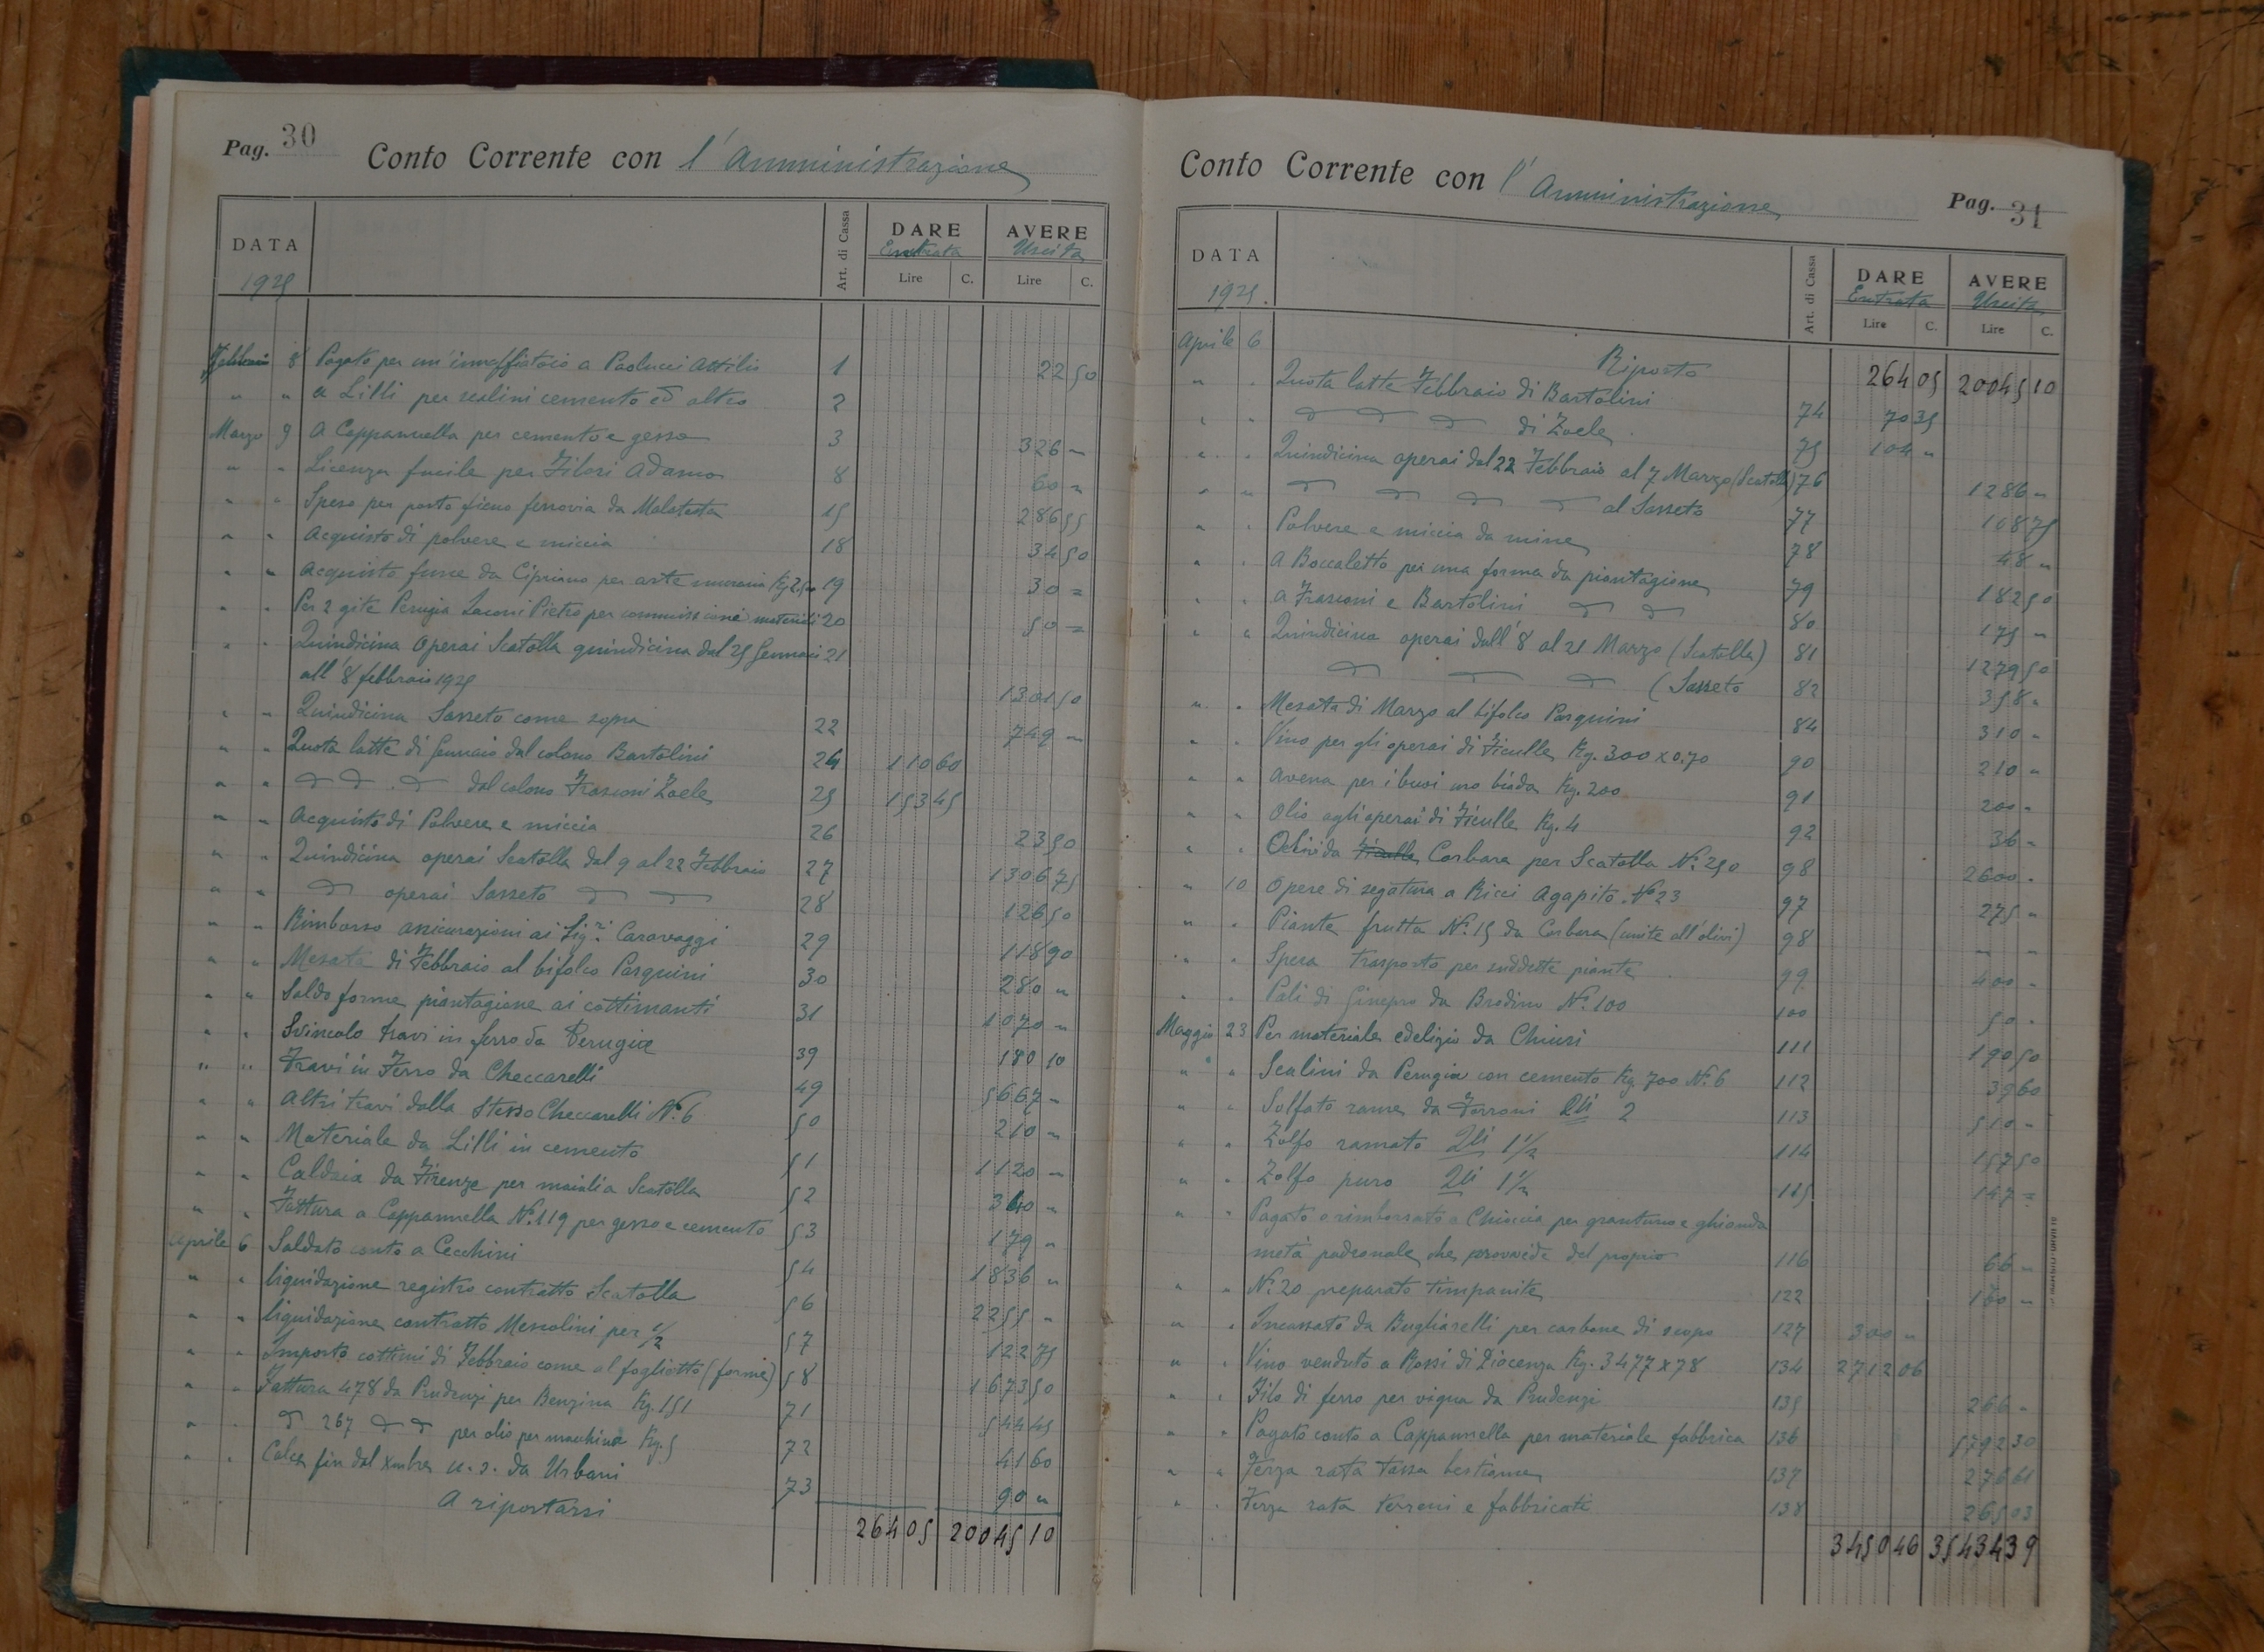 Pag. 30
Conto Corrente con l'Amministrazione
DATA Art. di Cassa DARE AVERE
Entrata Uscita
1925 Lire C. Lire C.
Febbraio 8 Pagato per un'innaffiatoio a Paolucci Attilio 1 22 50
" " a Lilli per scalini cemento ed altro 2
Marzo 9 A Cappannella per cemento e gesso 3 326 "
" " Licenza fucile per Filori Adamo 8 60 "
" " Spese per porto fieno ferrovia da Malatesta 15 286 55
" " Acquisto di polvere e miccia 18 34 50
" " Acquisto fune da Cipriano per arte muraria Kg 2,500 19 30 =
" " Per 2 gite Perugia Saconi Pietro per commissioni materiali 20 50 =
" " Quindicina Operai Scatolla quindicina dal 25 Gennaio 21
all'8 febbraio 1925 1301 50
" " Quindicina Sasseto come sopra 22 749 "
" " Quota latte di Gennaio dal colono Bartolini 24 110 60
" " dal colono Frasconi Zoele 25 153 45
" " Acquisto di Polvere e miccia 26 23 50
" " Quindicina operai Scatolla dal 9 al 22 Febbraio 27 1306 75
" " operai Sasseto 28 126 50
" " Rimborso assicurazioni ai Sigri Caravaggi 29 118 90
" " Mesata di Febbraio al bifolco Pasquini 30 280 "
" " Saldo forme piantagione ai cottimanti 31 1070 "
" " Svincolo travi in ferro da Perugia 39 180 10
" " Travi in Ferro da Checcarelli 49 5667 "
" " Altri travi dallo stesso Checcarelli N. 6 50 210 "
" " Materiale da Lilli in cemento 51 1120 "
" " Caldaia da Firenze per maialia Scatolla 52 340 "
" " Fattura a Cappannella N. 119 per gesso e cemento 53 179 "
Aprile 6 Saldato conto a Cecchini 54 1836 "
" " liquidazione registro contratto Scatolla 56 2255 "
" " liquidazione contratto Mescolini per 1/2 57 122 75
" " Importo cottimi di Febbraio come al foglietto (forme) 58 1673 50
" " Fattura 478 da Prudenzi per Benzina Kg. 151 71 544 45
" " 267 per olio per macchina Kg. 5 72 41 60
" " Calce fin dal Xmbre u.s. da Urbani 73 90 "
A riportarsi
264 05 20045 10
Conto Corrente con l'Amministrazione
Pag. 31
DATA Art. di Cassa DARE AVERE
Entrata Uscita
1925. Lire C. Lire C.
Aprile 6 Riporto 264 05 20045 10
" " Quota latte Febbraio di Bartolini 74 70 35
" " di Zoele 75 104 "
" " Quindicina operai dal 22 Febbraio al 7 Marzo (Scatolla) 76 1286 "
" " al Sasseto 77 108 75
" " Polvere e miccia da mine 78 48 "
" " A Boccaletto per una forma da piantagione 79 182 50
" " a Frasconi e Bartolini 80 175 "
" " Quindicina operai dall'8 al 21 Marzo (Scatolla) 81 1279 50
(Sasseto 82 358 "
" " Mesata di Marzo al bifolco Pasquini 84 310 "
" " Vino per gli operai di Ficulle Kg. 300 x 0,70 90 210 "
" " Avena per i buoi uso biada Kg. 200 91 200 "
" " Olio agli operai di Ficulle Kg. 4 92 36 "
" " Olivi da Ficulle Corbara per Scatolla N. 250 98 2600 "
" 10 Opere di segatura a Ricci Agapito N. 23 97 275 "
" " Piante frutta N. 15 da Corbara (unite all'olivi) 98 " "
" " Spesa trasporto per suddette piante 99 400 "
" " Pali di Ginepro da Brodino N. 100 100 50 "
Maggio 23 Per materiale edelizio da Chiusi 111 190 50
" " Scalini da Perugia con cemento Kg 700 N. 6 112 39 60
" " Solfato rame da Forroni Qli 2 113 510 "
" " Zolfo ramato Qli 1 1/2 114 157 50
" " Zolfo puro Qli 1 1/2 115 147 =
" " Pagato o rimborsato a Chioccia per granturco e ghianda
metà padronale che provvide del proprio 116 66 "
" " N. 20 preparato timpanite 122 160 "
" " Incassato da Bugliarelli per carbone di scopo 127 300 "
" " Vino venduto a Rossi di Piacenza Kg. 3477 x 78 134 2712 06
" " Filo di ferro per vigna da Prudenzi 135 266 "
" " Pagato conto a Cappannella per materiale fabbrica 136 5792 30
" " Terza rata tassa bestiame 137 276 61
" " Terza rata terreni e fabbricati 138 265 03
3450 46 35434 39